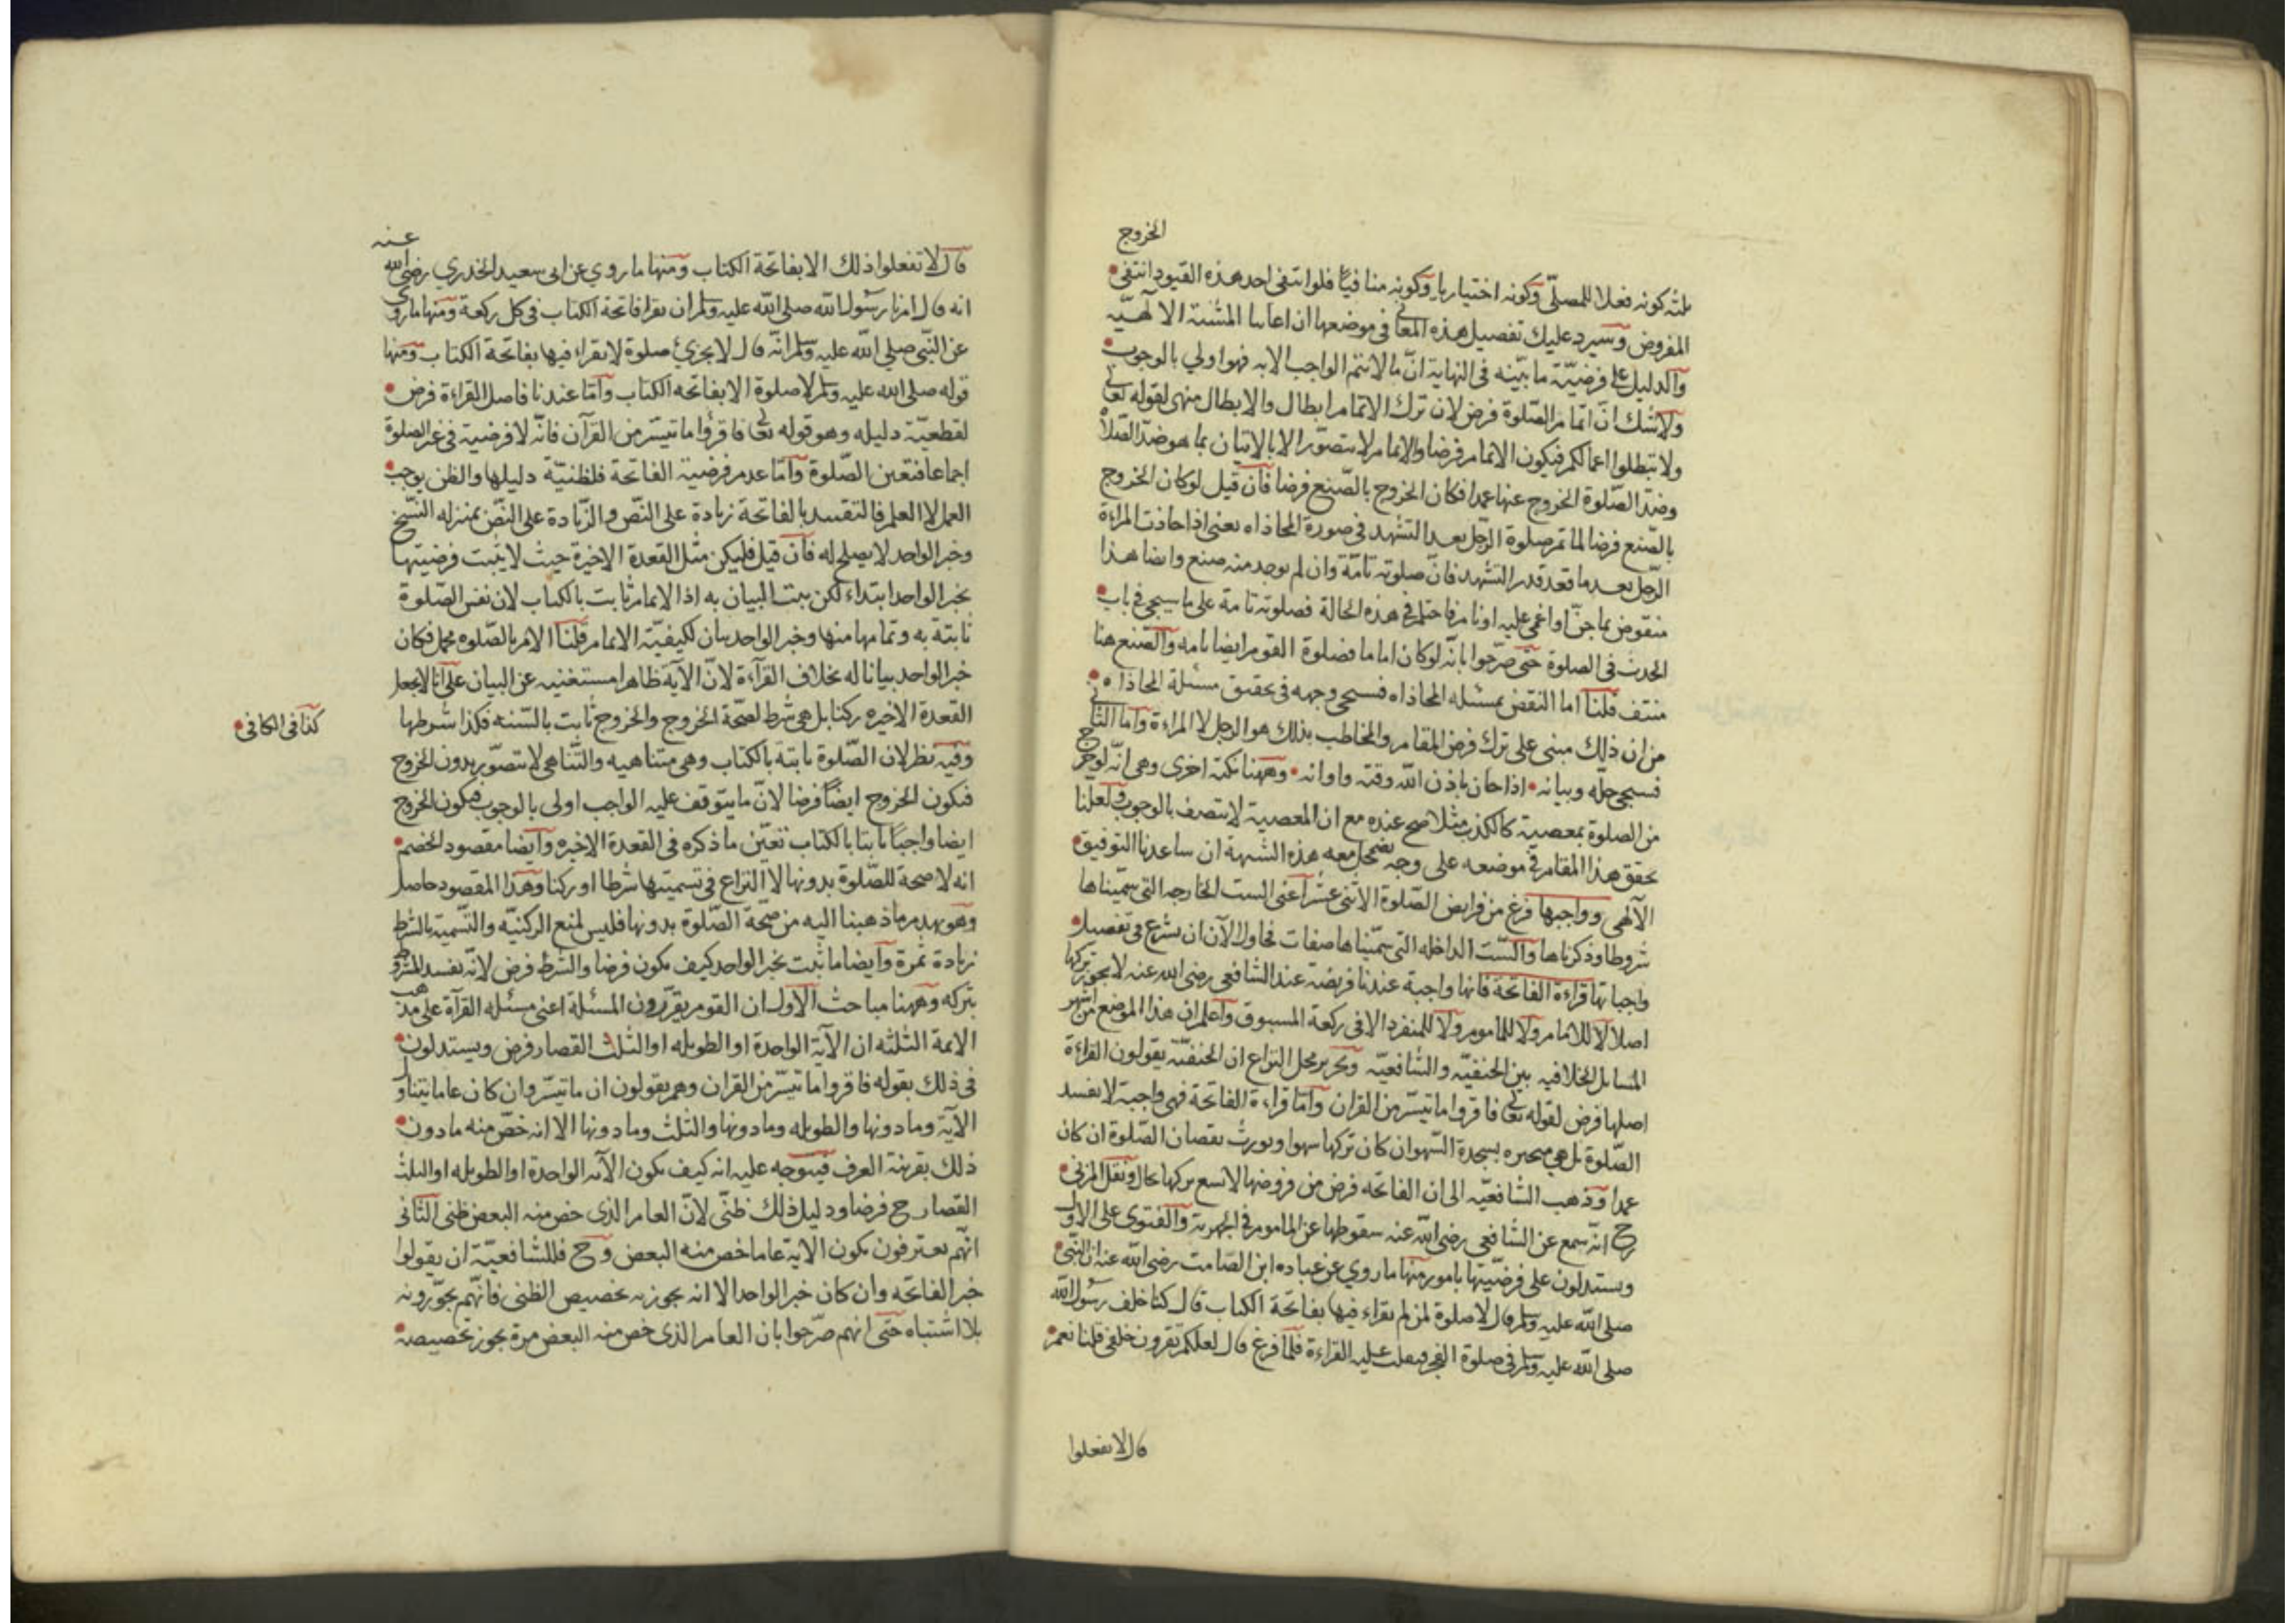 الخروج
ثلثة كونه فعلا للمصلّي وكونه اختياريا وكونه منافيا فلو انتفى احد هذه القيود انتفى
المفروض وسيرد عليك تفصيل هذه المعاني في موضعها ان اعاننا المشية الالهيّة
والدليل على فرضيّة ما بيّنه في النهاية انّ ما لا يتم الواجب الا به فهو اولي بالوجوب
ولا شك انّ اتمام الصّلوة فرض لان ترك الاتمام ابطال والابطال منهى لقوله تعالى
ولا تبطلوا اعمالكم فيكون الاتمام فرضا والاتمام لا يتصوّر الا بالاتيان بما هو ضدّ الصّلاة
وضدّ الصّلوة الخروج عنها عمدا فكان الخروج بالصّنع فرضا فان قيل لو كان الخروج
بالصّنع فرضا لما تم صلوة الرّجل بعد التشهد في صورة المحاذاه يعنى اذا حاذت المراءة
الرّجل بعد ما قعد قدر التشهد فانّ صلوته تامّة وان لم يوجد منه صنع وايضا هذا
منقوض بما جنّ او اغمى عليه او نام فاحتلم في هذه الحالة فصلوته تامة على ما سيجى في باب
الحدث في الصلوة حتى صرّحوا بانّه لو كان اماما فصلوة القوم ايضا تامه والصّنع هنا
منتف قلنا اما النقض بمسئله المحاذاه فسيجى وجهه في تحقيق مسئلة المحاذاه
من ان ذلك مبنى على ترك فرض المقام والمخاطب بذلك هو الرجل لا المراءة واما الثاني
فسيجى حلّه وبيانه اذا حان باذن الله وقته واوانه وههنا نكتة اخرى وهى انّه لو خرج
من الصلوة بمعصية كالكذب مثلا صح عنده مع ان المعصية لا تتصف بالوجوب ولعلنا
نحقق هذا المقام في موضعه على وجه يضمحل معه هذه الشبهة ان ساعدنا التوفيق
الآلهى وواجبها فرغ من فرايض الصّلوة الاثنى عشر اعنى الست الخارجه التي سمّيناها
شروطا وذكرناها والسّت الداخله التي سمّيناها صفات فحاول الآن ان يشرع في تفصيل
واجباتها قراءة الفاتحة فانها واجبة عندنا فريضة عند الشافعي رضى الله عنه لا يجوز تركها
اصلا لا للامام ولا للماموم ولا للمنفرد الا في ركعة المسبوق واعلم ان هذا الموضع من اشهر
المسايل الخلافيه بين الحنفيّه والشافعيّه وتحرير محل النزاع ان الحنفيّة يقولون القراءة
اصلها فرض لقوله تعالى فاقروا ما تيسّر من القران وامّا قراءة الفاتحة فهى واجبة لا تفسد
الصّلوة بل هى منجبره بسجدة السّهو ان كان تركها سهوا ويورث نقصان الصّلوة ان كان
عمدا وذهب الشافعيّه الى ان الفاتحه فرض من فروضها لا تسع تركها بحال ونقل المزنى
رح انّه سمع عن الشافعي رضى الله عنه سقوطها عن الماموم في الجهرية والفتوى على الاول
ويستدلون على فرضيّتها بامور منها ما روي عن عباده ابن الصّامت رضى الله عنه ان النّبي
صلى الله عليه وسلم قال لا صلوة لمن لم يقراء فيها بفاتحة الكتاب قال كنا خلف رسول الله
صلى الله عليه وسلم في صلوة الفجر فثقلت عليه القراءة فلمّا فرغ قال لعلكم تقرون خلفى قلنا نعم
قال لا تفعلوا
عنه
قال لا تفعلوا ذلك الا بفاتحة الكتاب ومنها ما روي عن ابى سعيد الخدري رضى الله
انه قال امرنا رسول الله صلى الله عليه وسلم ان نقرا فاتحة الكتاب في كل ركعة ومنها ما روى
عن النّبي صلى الله عليه وسلم انّه قال لا يجزئ صلوة لا يقراء فيها بفاتحة الكتاب ومنها
قوله صلى الله عليه وسلم لا صلوة الا بفاتحه الكتاب وامّا عندنا فاصل القراءة فرض
لقطعيّة دليله وهو قوله تعالى فاقرؤا ما تيسّر من القرآن فانّه لا فرضية في غير الصلوة
اجماعا فتعين الصّلوة وامّا عدم فرضية الفاتحة فلظنيّة دليلها والظن يوجب
العمل لا العلم فالتقييد بالفاتحة زيادة على النّص والزّيادة على النّص بمنزله النّسخ
وخبر الواحد لا يصلح له فان قيل فليكن مثل القعدة الاخيرة حيث لا يثبت فرضيتها
بخبر الواحد ابتداء لكن يثبت البيان به اذ الاتمام ثابت بالكتاب لان نفس الصّلوة
ثابتة به وتمامها منها وخبر الواحد بيان لكيفيّة الاتمام قلنا الامر بالصّلوه مجمل فكان
خبر الواحد بيانا له بخلاف القرآءة لانّ الآية ظاهرا مستغنيه عن البيان على انّا لا نجعل
القعدة الاخيره ركنا بل هى شرط لصحّة الخروج والخروج ثابت بالسّنه فكذا شرطها
كذا في الكافى
وفيه نظر لان الصّلوة ثابتة بالكتاب وهى متناهيه والتّناهى لا يتصوّر بدون الخروج
فيكون الخروج ايضاً فرضا لانّ ما يتوقف عليه الواجب اولى بالوجوب فيكون الخروج
ايضا واجباً ثابتا بالكتاب تعيّن ما ذكره في القعدة الاخيره وايضا مقصود الخصم
انه لا صحة للصّلوة بدونها لا النزاع في تسميتها شرطا او ركنا وهذا المقصود حاصل
وهو يهدم ما ذهبنا اليه من صحّة الصّلوة بدونها فليس لمنع الركنيّه والتّسمية بالشرط
زيادة ثمرة وايضا ما ثبت بخبر الواحد كيف يكون فرضا والشرط فرض لانّه يفسد المشروط
بتركه وههنا مباحث الاول ان القوم يقرّرون المسئلة اعنى مسئله القرآة على مذهب
الايمة الثلثه ان الآية الواحدة او الطويله او الثلث القصار فرض ويستدلون
في ذلك بقوله فاقروا ما تيسّر من القران وهم يقولون ان ما تيسّر وان كان عاما يتناول
الآية وما دونها والطويله وما دونها والثلث وما دونها الا انه خصّ منه ما دون
ذلك بقرينة العرف فيتوجه عليه انه كيف يكون الآية الواحدة او الطويله او الثلث
القصار ح فرضا ودليل ذلك ظنّى لانّ العام الذى خص منه البعض ظنى الثّانى
انّهم يعترفون بكون الاية عاما خص منه البعض وح فللشافعيّة ان يقولوا
خبر الفاتحه وان كان خبر الواحد الا انه يجوز به تخصيص الظنى فانّهم يجوّزونه
بلا اشتباه حتى انهم صرّحوا بان العام الذى خص منه البعض مرة يجوز تخصيصه